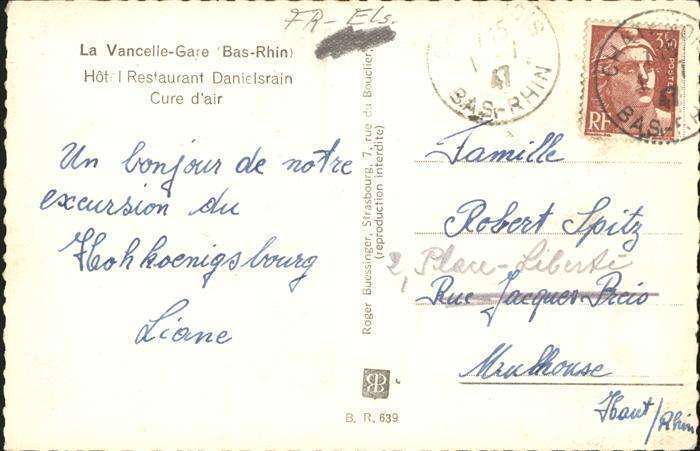 FR-Els.
La Vancelle-Gare (Bas-Rhin)
Hôtel Restaurant Danielsrain
Cure d'air
Un bonjour de notre
excursion du
Hohkoenigsbourg
Liane
Roger Buessinger, Strasbourg, 7, rue du Bouclier,
(reproduction interdite)
B. R. 639
47
BAS-RHIN
3F
POSTES
RF
47
BAS-
Famille
Robert Spitz
2, Place-Liberté
Rue Jacques-Preio
Mulhouse
Haut/Rhin